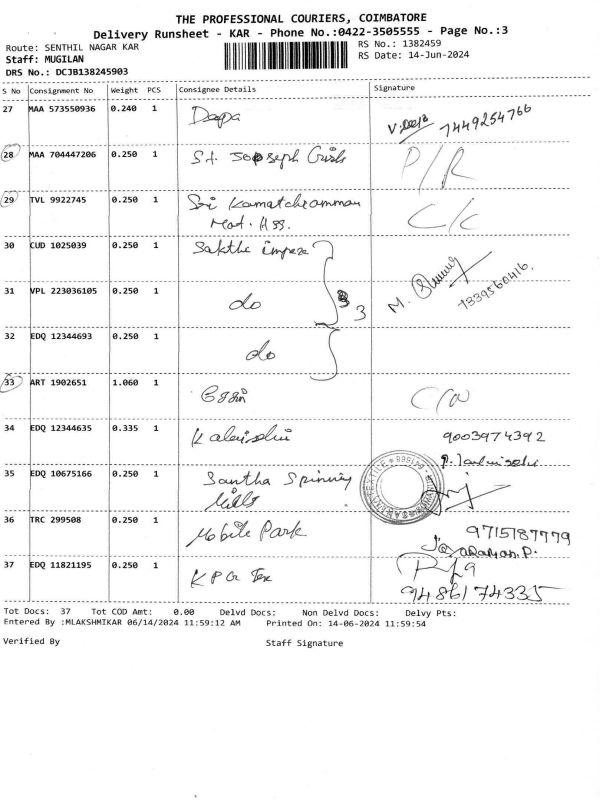 THE PROFESSIONAL COURIERS, COIMBATORE
Delivery Runsheet - KAR - Phone No.:0422-3505555 - Page No.:3
Route: SENTHIL NAGAR KAR
RS No.: 1382459
Staff: MUGILAN
RS Date: 14-Jun-2024
DRS No.: DCJB138245903
S No Consignment No Weight PCS Consignee Details Signature
27 MAA 573550936 0.240 1 Deepa V. Deepa 7449254766
28 MAA 704447206 0.250 1 St. Joseph P/R
29 TVL 9922745 0.250 1 Sri Kamatchiamman C/C
Mat. Hss.
30 CUD 1025039 0.250 1 Sakthi impex
31 VPL 223036105 0.250 1 do 3 M. 7339560416.
32 EDQ 12344693 0.250 1 do
33 ART 1902651 1.060 1
34 EDQ 12344635 0.335 1 Kalaiselvi 9003974392
35 EDQ 10675166 0.250 1 Santha Spinning
Mills
36 TRC 299508 0.250 1 Mobile Park 9715787779
Jayaraman.P.
37 EDQ 11821195 0.250 1 K P R Tex
9486174335
Tot Docs: 37 Tot COD Amt: 0.00 Delvd Docs: Non Delvd Docs: Delvy Pts:
Entered By :MLAKSHMIKAR 06/14/2024 11:59:12 AM Printed On: 14-06-2024 11:59:54
Verified By Staff Signature